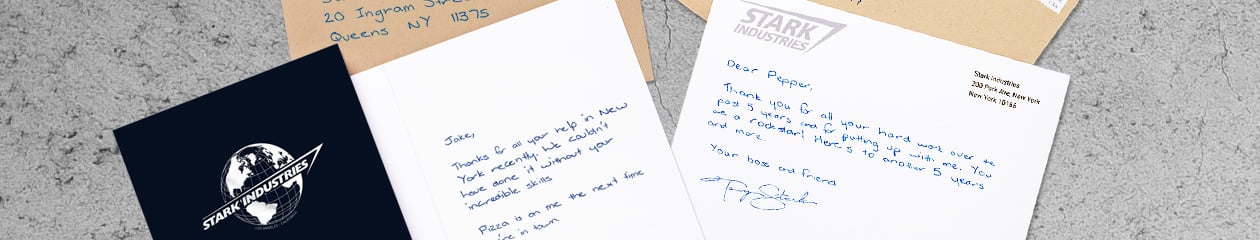 20 Ingram Stree
Queens NY 11375
STARK INDUSTRIES
LOS ANGELES - CALIFORNIA
Jake,
Thanks for all your help in New
York recently. We couldn't
have done it without your
incredible skills
Pizza is on me the next time
in town
STARK
INDUSTRIES
Stark Industries
200 Park Ave, New York
New York 10166
Dear Pepper,
Thank you for all your hard work over the
past 5 years and for putting up with me. You
are a rockstar! Here's to another 5 years
and more.
Your boss and friend
Tony Stark